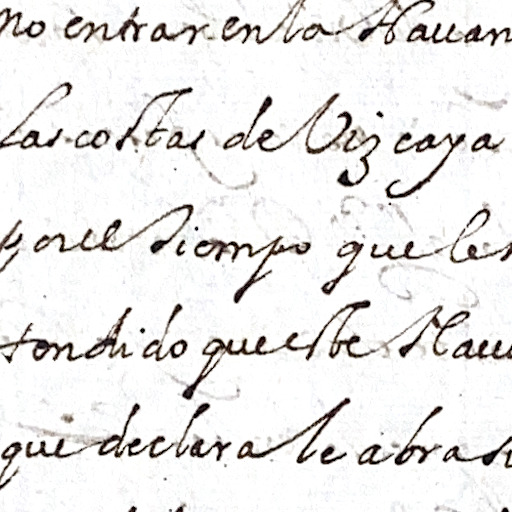 no entrar en la Hauan
las costas de Vizcaya
por el tiempo que les
tendido que este Nau
que declara le abras